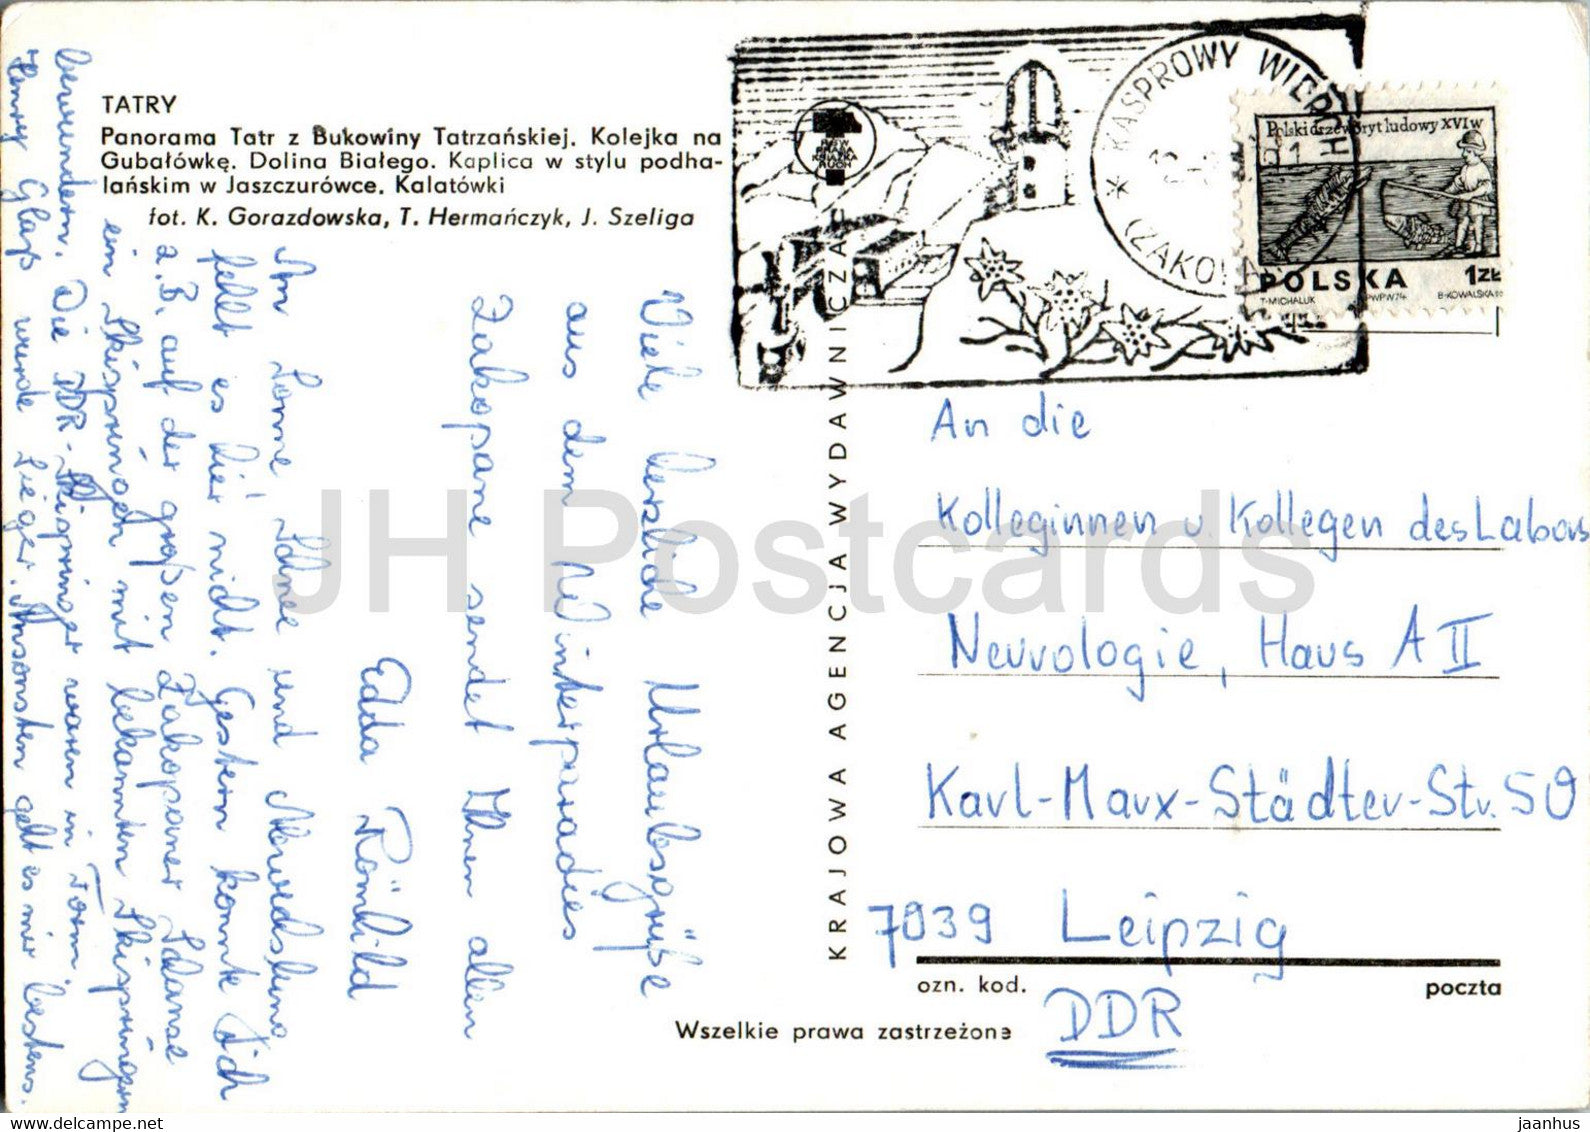 TATRY
Panorama Tatr z Bukowiny Tatrzańskiej. Kolejka na
Gubałówkę. Dolina Białego. Kaplica w stylu podha-
lańskim w Jaszczurówce. Kalatówki
fot. K. Gorazdowska, T. Hermańczyk, J. Szeliga
Viele herzliche Urlaubsgrüße
aus dem Winterparadies
Zakopane sendet Ihnen allen
Edda Römhild
An Sonne Schnee und
fehlt es hier nicht. Gestern konnte ich
z.B. auf der großen Zakopaner Schanze
ein Skispringen mit bekannten Skispringern
bewundern. Die DDR-Skispringer waren in Form.
Henry Glaß wurde Sieger. Ansonsten geht es mir bestens.
KRAJOWA AGENCJA WYDAWNICZA
KASPROWY WIERCH
(ZAKOPA
Polski drzeworyt ludowy XVI w
POLSKA 1ZŁ
T·MICHALUK PWPW 74 B·KOWALSKA
An die
Kolleginnen u. Kollegen des Labors
Neurologie, Haus A II
Karl-Marx-Städter-Str. 50
7039 Leipzig
ozn. kod. poczta
DDR
Wszelkie prawa zastrzeżone
JH Postcards
jaanhus © www.delcampe.net